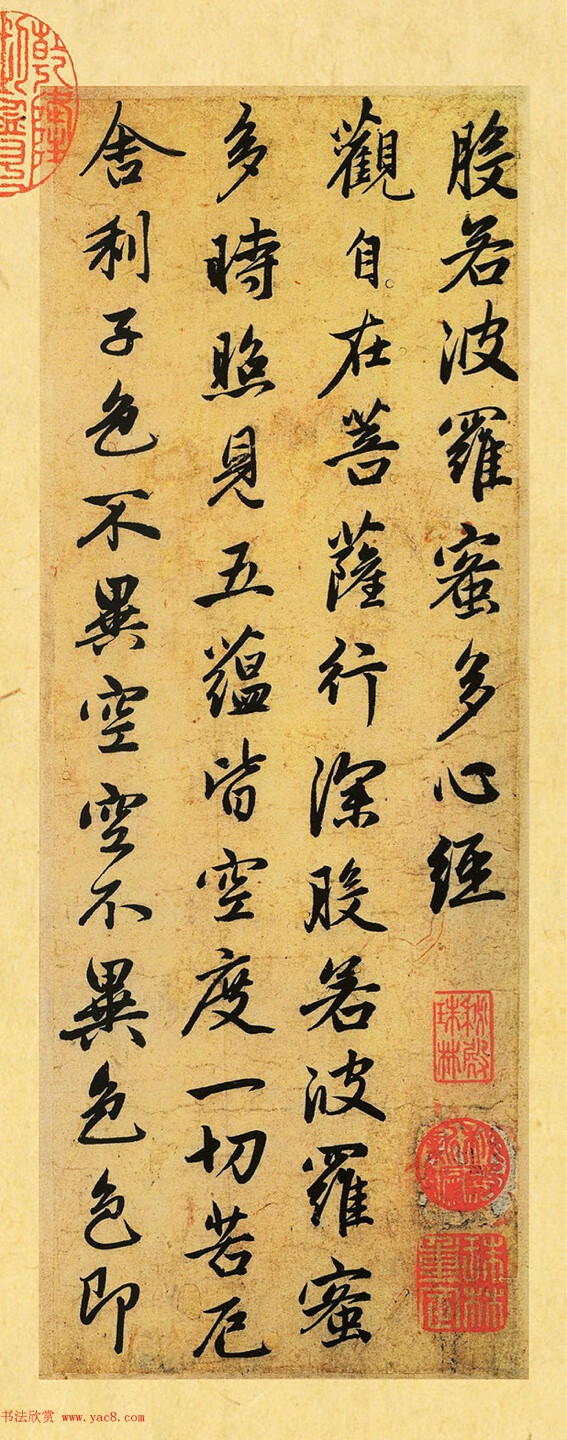 般若波羅蜜多心經
觀自在菩薩行深般若波羅蜜
多時照見五蘊皆空度一切苦厄
舍利子色不異空空不異色色即
秘殿珠林
珠林重定
书法欣赏 www.yac8.com